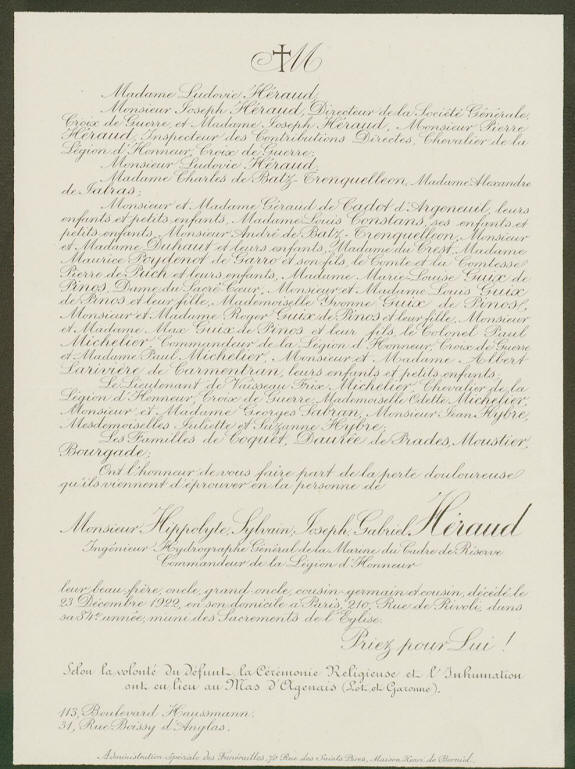 M
Madame Ludovic Héraud,
Monsieur Joseph Héraud, Directeur de la Société Générale,
Croix de Guerre et Madame Joseph Héraud, Monsieur Pierre
Héraud, Inspecteur des Contributions Directes, Chevalier de la
Légion d'Honneur, Croix de Guerre;
Monsieur Ludovic Héraud,
Madame Charles de Batz-Trenquelleon, Madame Alexandre
de Jalras;
Monsieur et Madame Géraud de Cadot d'Argeneuil, leurs
enfants et petits enfants, Madame Louis Constans, ses enfants et
petits enfants, Monsieur André de Batz-Trenquelleon, Monsieur
et Madame Duhaut et leurs enfants, Madame du Crest, Madame
Maurice Poydenot de Garro et son fils, le Comte et la Comtesse
Pierre de Puch et leurs enfants, Madame Marie-Louise Guix de
Pinos, Dame du Sacré Cœur, Monsieur et Madame Louis Guix
de Pinos et leur fille, Mademoiselle Yvonne Guix de Pinos,
Monsieur et Madame Roger Guix de Pinos et leur fille, Monsieur
et Madame Max Guix de Pinos et leur fils, le Colonel Paul
Michelier, Commandeur de la Légion d'Honneur, Croix de Guerre
et Madame Paul Michelier, Monsieur et Madame Albert
Larivière de Carmentran, leurs enfants et petits enfants;
Le Lieutenant de Vaisseau Frix Michelier, Chevalier de la
Légion d'Honneur, Croix de Guerre, Mademoiselle Odette Michelier,
Monsieur et Madame Georges Sabran, Monsieur Jean Hybre,
Mesdemoiselles Juliette et Suzanne Hybre;
Les Familles de Coquet, Daurée de Prades, Moustier,
Bourgade;
Ont l'honneur de vous faire part de la perte douloureuse
qu'ils viennent d'éprouver en la personne de
Monsieur Hippolyte, Sylvain, Joseph, Gabriel Héraud
Ingénieur Hydrographe Général de la Marine du Cadre de Réserve
Commandeur de la Légion d'Honneur
leur beau-frère, oncle, grand-oncle, cousin-germain et cousin, décédé le
23 Décembre 1922, en son domicile à Paris, 210, Rue de Rivoli, dans
sa 84e année, muni des Sacrements de l'Église.
Priez pour Lui !
Selon la volonté du défunt la Cérémonie Religieuse et l'Inhumation
ont eu lieu au Mas d'Agenais (Lot et Garonne).
113, Boulevard Haussmann.
31, Rue Boissy d'Anglas.
Administration Spéciale des Funérailles, 70 Rue des Saints Pères, Maison Henri de Borniol.